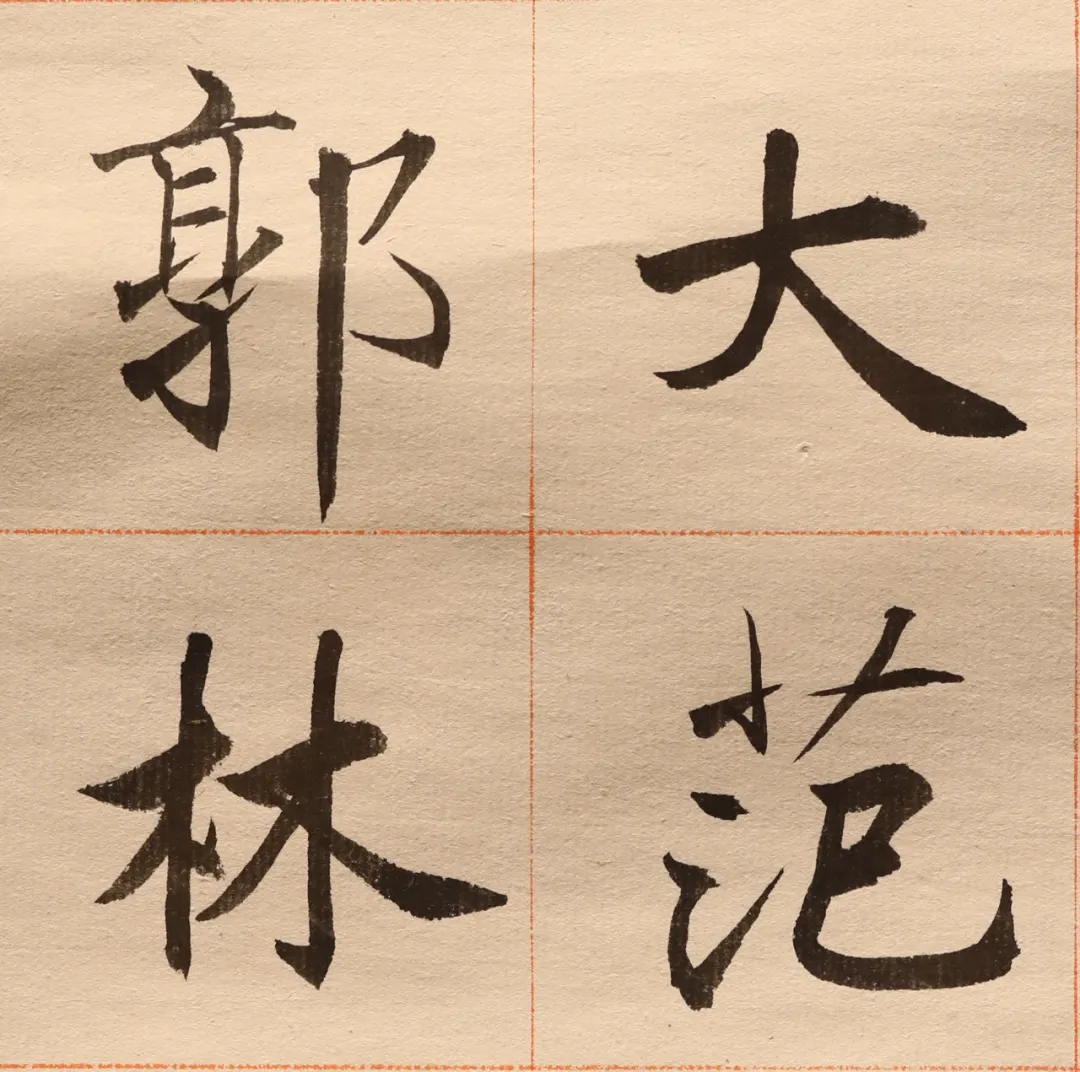 大范
郭林